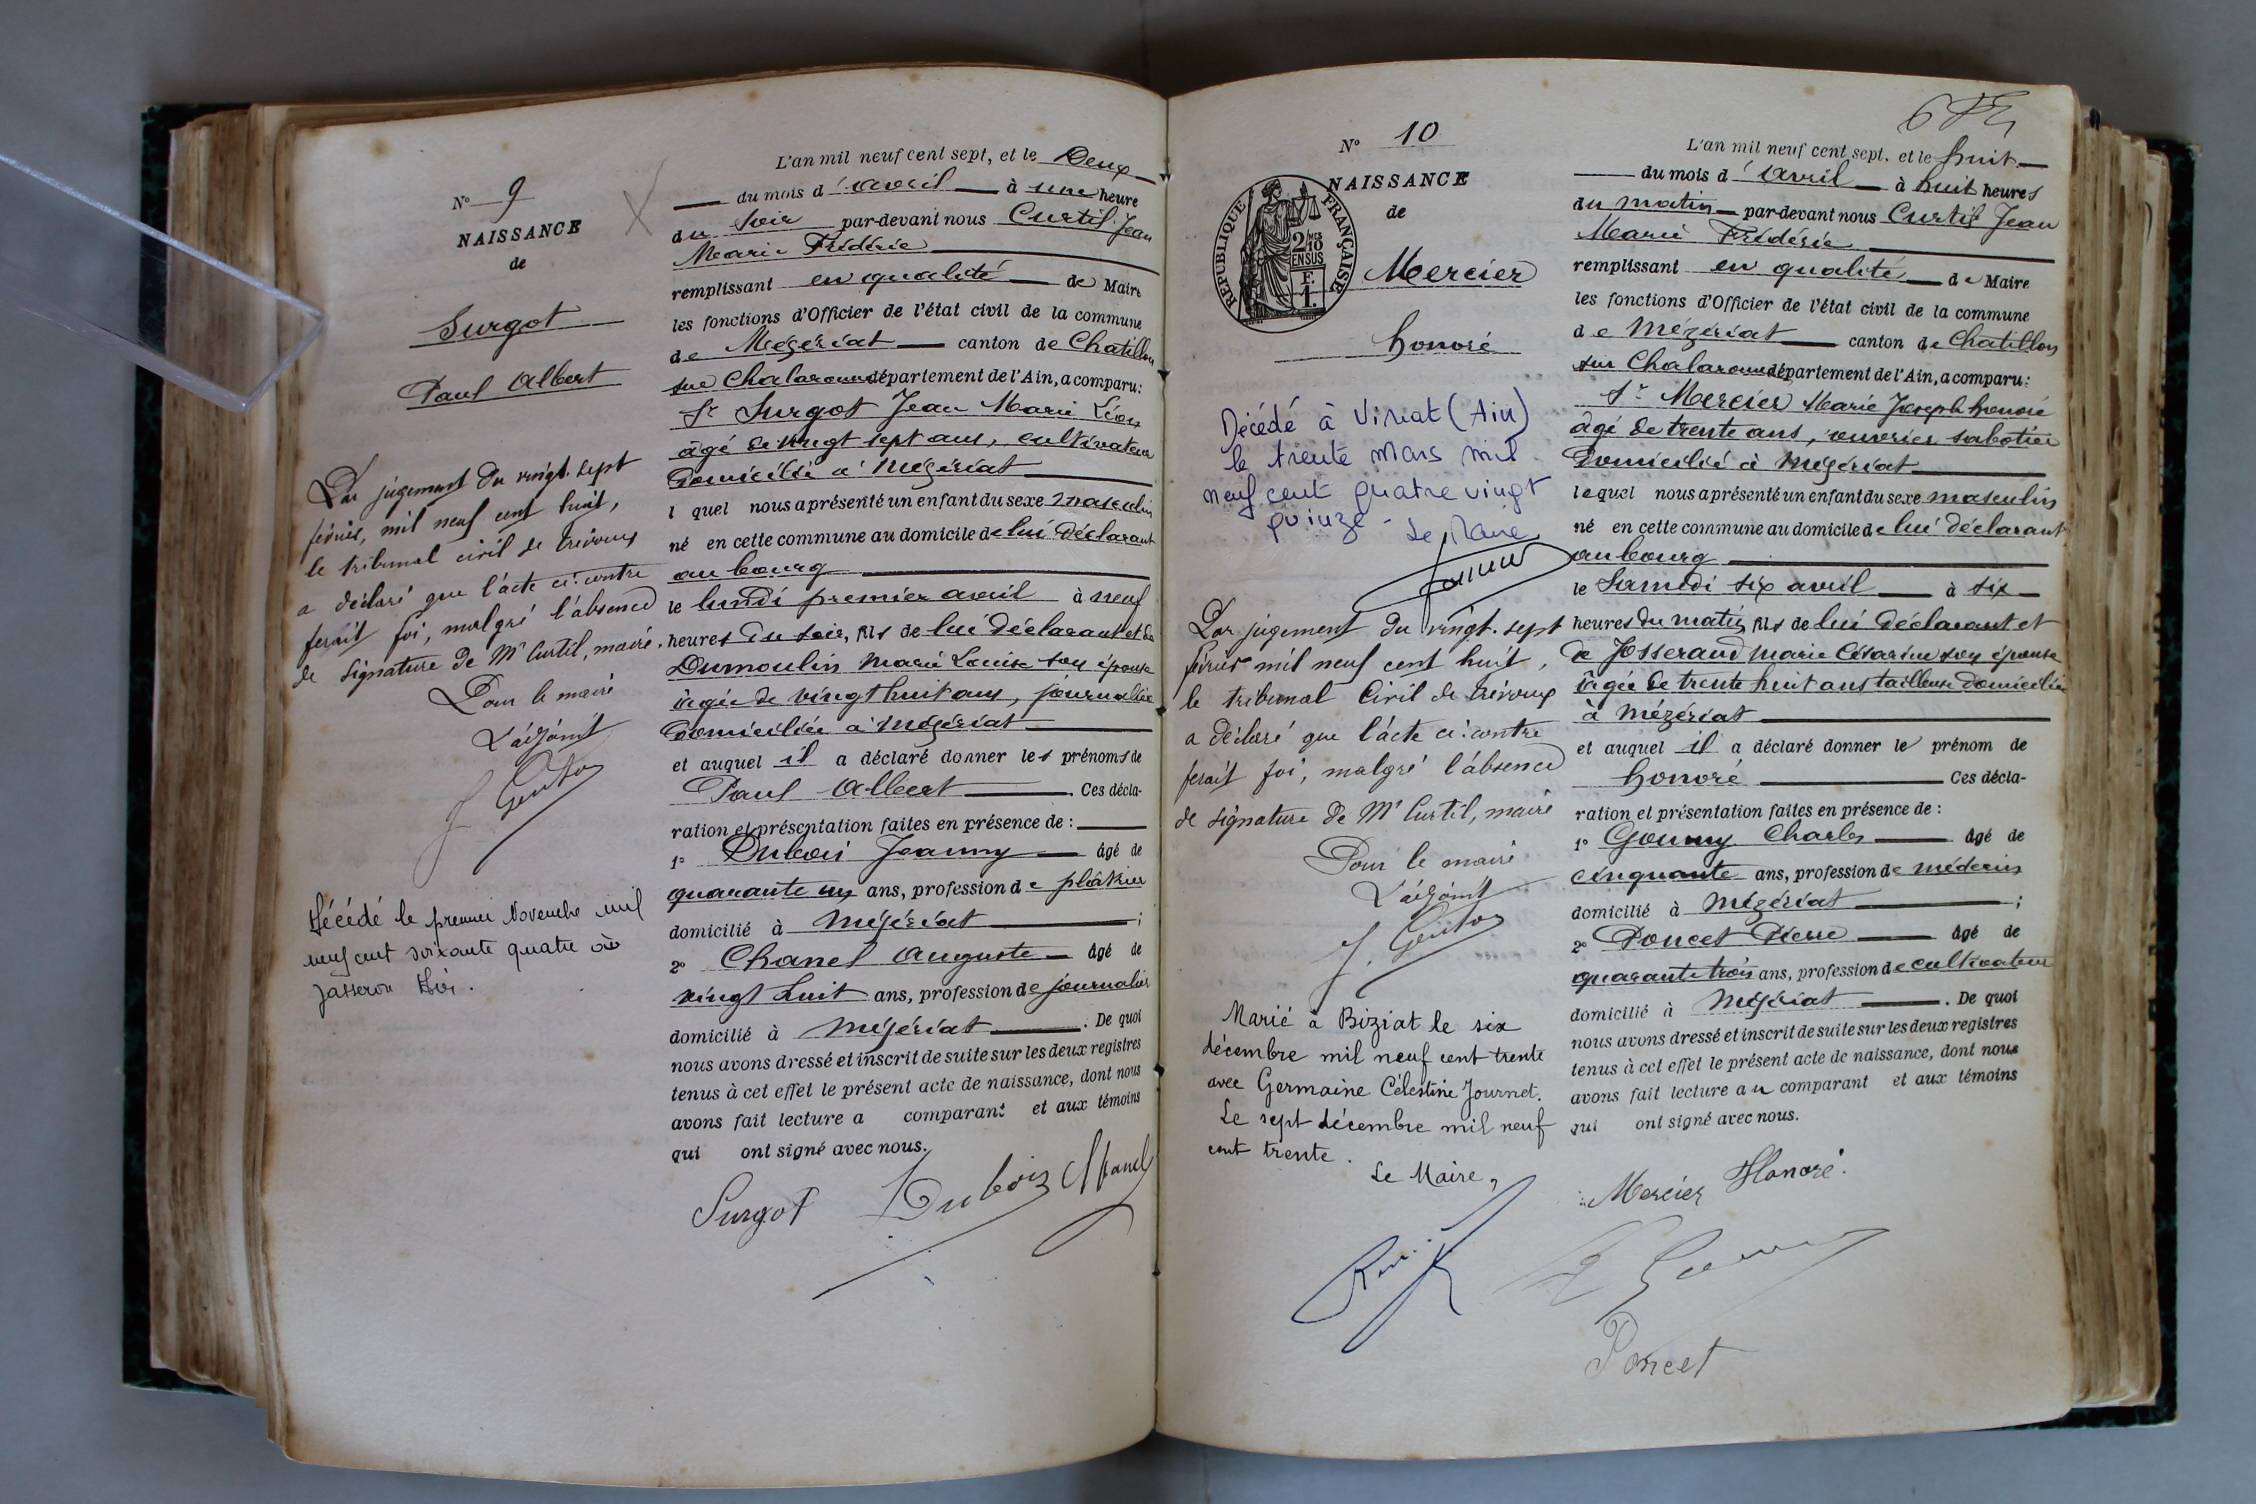 N° 9
NAISSANCE
de
Surgot
Paul Albert
Par jugement du vingt-sept
février, mil neuf cent huit,
le tribunal civil de Trévoux
a déclaré que l'acte ci-contre
ferait foi, malgré l'absence
de signature de Mr Curtil, maire.
Pour le maire
L'adjoint
Décédé le premier Novembre mil
neuf cent soixante quatre à
Jasseron
L'an mil neuf cent sept, et le Deux
du mois d'avril à une heure
du soir par-devant nous Curtil Jean
Marie Frédéric
remplissant en qualité de Maire
les fonctions d'Officier de l'état civil de la commune
de Mézériat canton de Chatillon
sur Chalaronne département de l'Ain, a comparu:
Sr Surgot Jean Marie Léon
âgé de vingt sept ans, cultivateur
domicilié à Mézériat
l quel nous a présenté un enfant du sexe masculin
né en cette commune au domicile de lui déclarant
au bourg
le lundi premier avril à neuf
heures du soir, fils de lui déclarant et de
Dumoulin Marie Louise son épouse
âgée de vingt huit ans, journalière
domiciliée à Mézériat
et auquel il a déclaré donner les prénoms de
Paul Albert . Ces décla-
ration et présentation faites en présence de :
1° Dubois Joanny âgé de
quarante un ans, profession de plâtrier
domicilié à Mézériat ;
2° Chanel Auguste âgé de
vingt huit ans, profession de journalier
domicilié à Mézériat . De quoi
nous avons dressé et inscrit de suite sur les deux registres
tenus à cet effet le présent acte de naissance, dont nous
avons fait lecture a comparant et aux témoins
qui ont signé avec nous.
Surgot Dubois Chanel
N° 10
NAISSANCE
de
REPUBLIQUE FRANÇAISE
2/10 MES
EN SUS
F.
1.
Mercier
Honoré
Décédé à Viriat (Ain)
le trente Mars mil
neuf cent quatre vingt
quinze - Le Maire
Par jugement du vingt-sept
février mil neuf cent huit,
le tribunal Civil de Trévoux
a déclaré que l'acte ci-contre
ferait foi, malgré l'absence
de signature de Mr Curtil, maire
Pour le maire
L'adjoint
Marié à Biziat le six
décembre mil neuf cent trente
avec Germaine Célestine Journet.
Le sept décembre mil neuf
cent trente.
Le Maire,
L'an mil neuf cent sept, et le huit
du mois d'avril à huit heures
du matin par-devant nous Curtil Jean
Marie Frédéric
remplissant en qualité de Maire
les fonctions d'Officier de l'état civil de la commune
de Mézériat canton de Chatillon
sur Chalaronne département de l'Ain, a comparu:
Sr Mercier Marie Joseph honoré
âgé de trente ans, ouvrier sabotier
domicilié à Mézériat
lequel nous a présenté un enfant du sexe masculin
né en cette commune au domicile de lui déclarant
au bourg
le Samedi six avril à six
heures du matin, fils de lui déclarant et
de Josserand Marie Césarine son épouse
âgée de trente huit ans tailleuse domiciliée
à Mézériat
et auquel il a déclaré donner le prénom de
honoré Ces décla-
ration et présentation faites en présence de :
1° Goumy Charles âgé de
cinquante ans, profession de médecin
domicilié à Mézériat ;
2° Poncet Pierre âgé de
quarante trois ans, profession de cultivateur
domicilié à Mézériat . De quoi
nous avons dressé et inscrit de suite sur les deux registres
tenus à cet effet le présent acte de naissance, dont nous
avons fait lecture au comparant et aux témoins
qui ont signé avec nous.
Mercier Honoré
Poncet